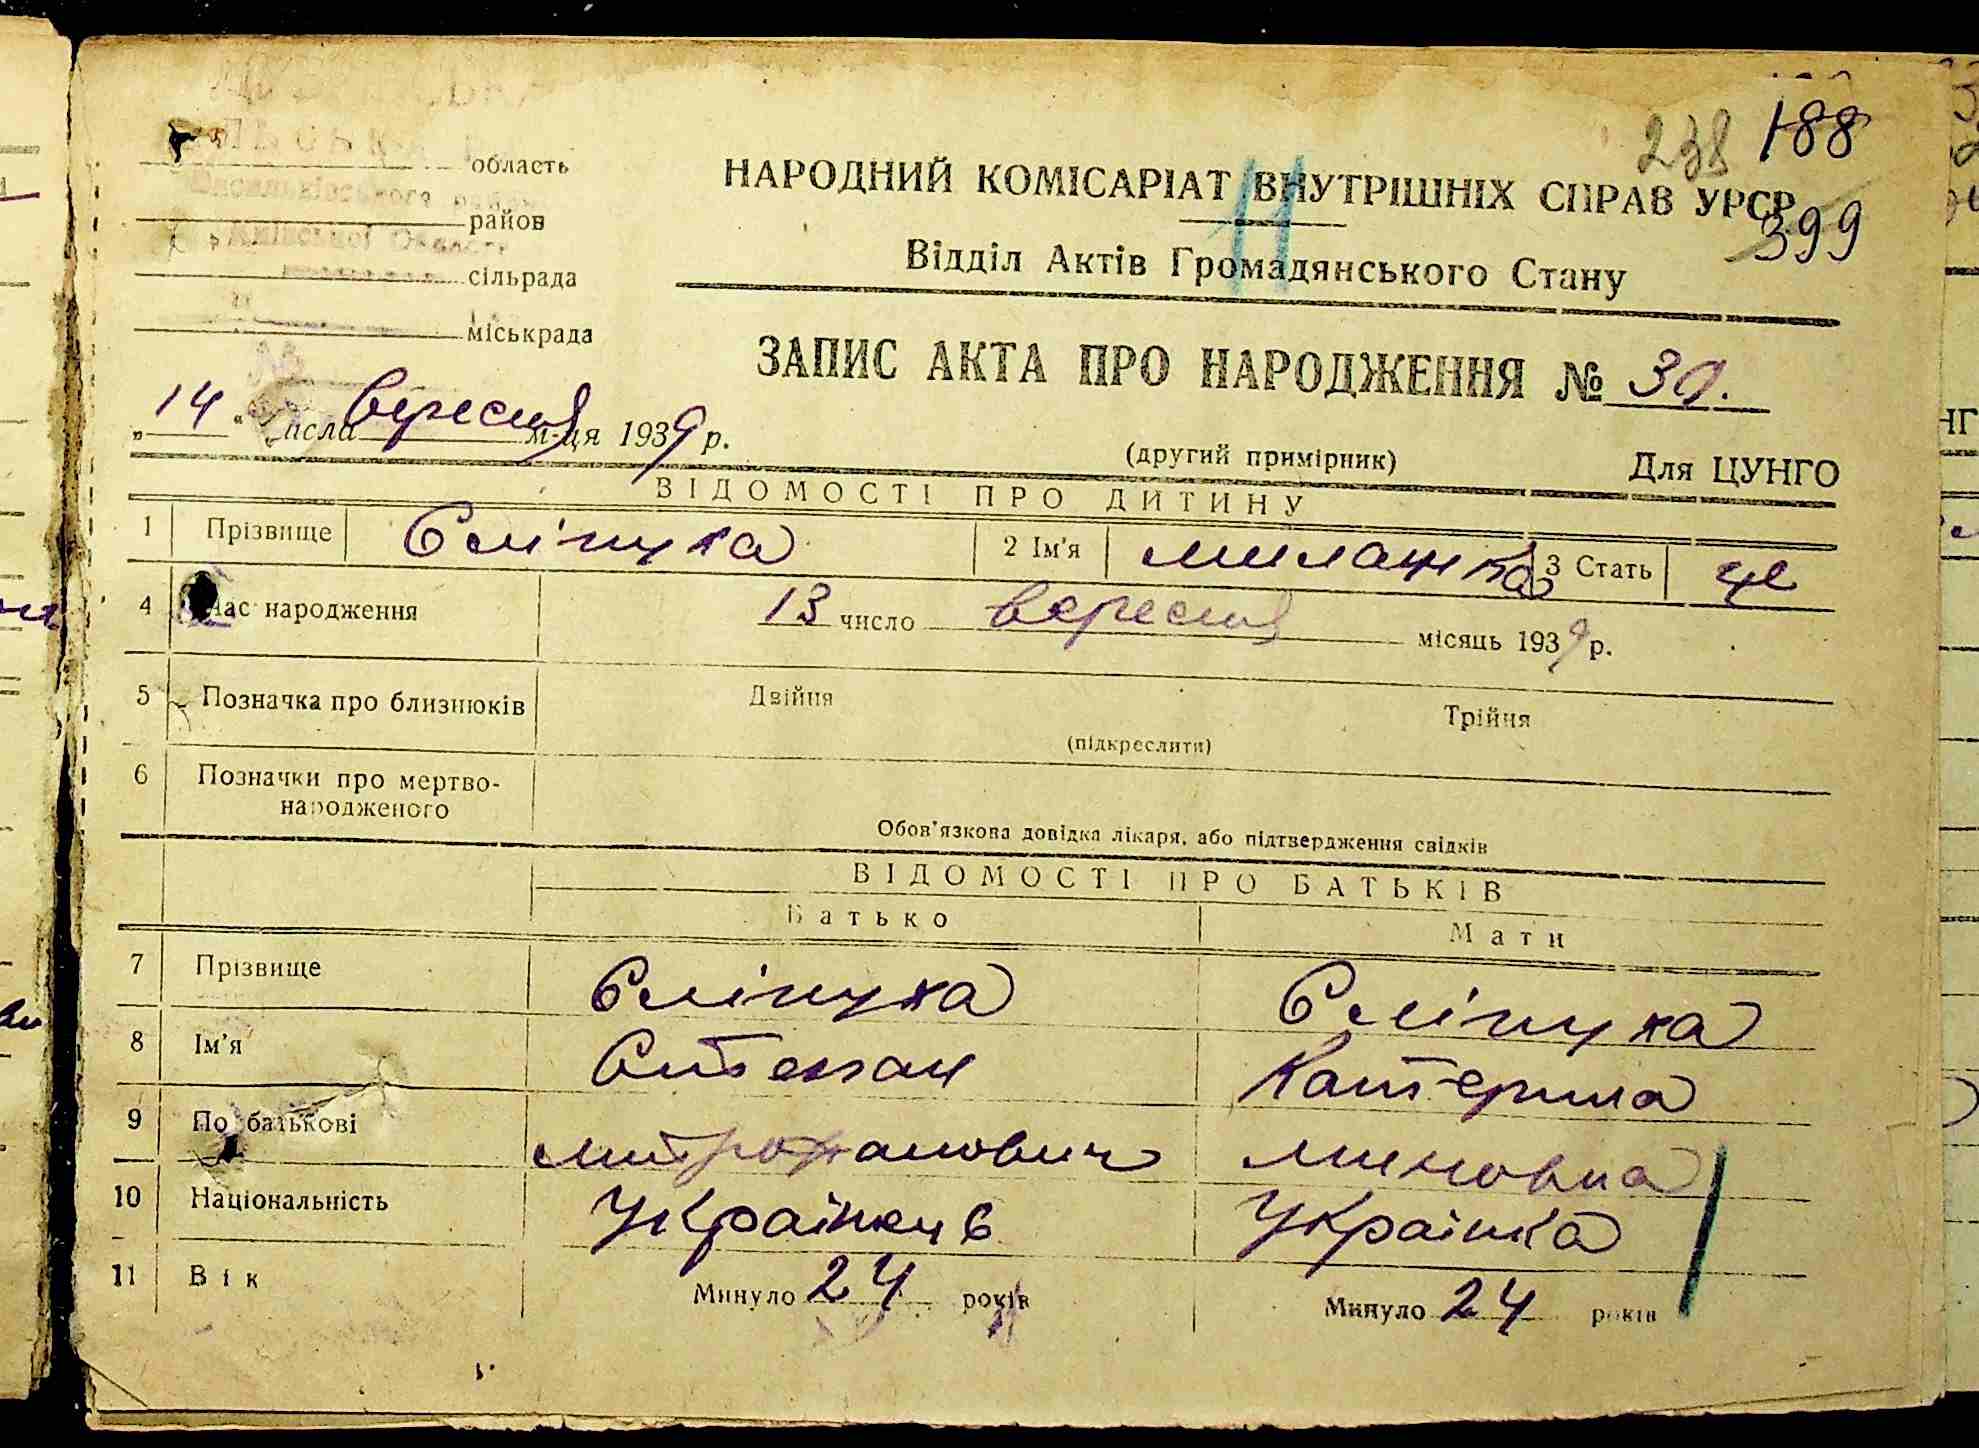 238 188
область
НАРОДНИЙ КОМІСАРІАТ ВНУТРІШНІХ СПРАВ УРСР
399
район
Київської Області
Відділ Актів Громадянського Стану
сільрада
міськрада
ЗАПИС АКТА ПРО НАРОДЖЕННЯ № 30.
„14“ числа вересня м-ця 1939 р.
(другий примірник) Для ЦУНГО
ВІДОМОСТІ ПРО ДИТИНУ
1 Прізвище Сліпуха 2 Ім'я Миланка 3 Стать ж
4 Час народження 13 число вересня місяць 1939 р.
5 Позначка про близнюків Двійня Трійня
(підкреслити)
6 Позначки про мертво-
народженого
Обов'язкова довідка лікаря, або підтвердження свідків
ВІДОМОСТІ ПРО БАТЬКІВ
Батько Мати
7 Прізвище Сліпуха Сліпуха
8 Ім'я Степан Катерина
9 По батькові Митрофанович Миновна
10 Національність Українець Українка
11 Вік Минуло 24 років Минуло 24 років